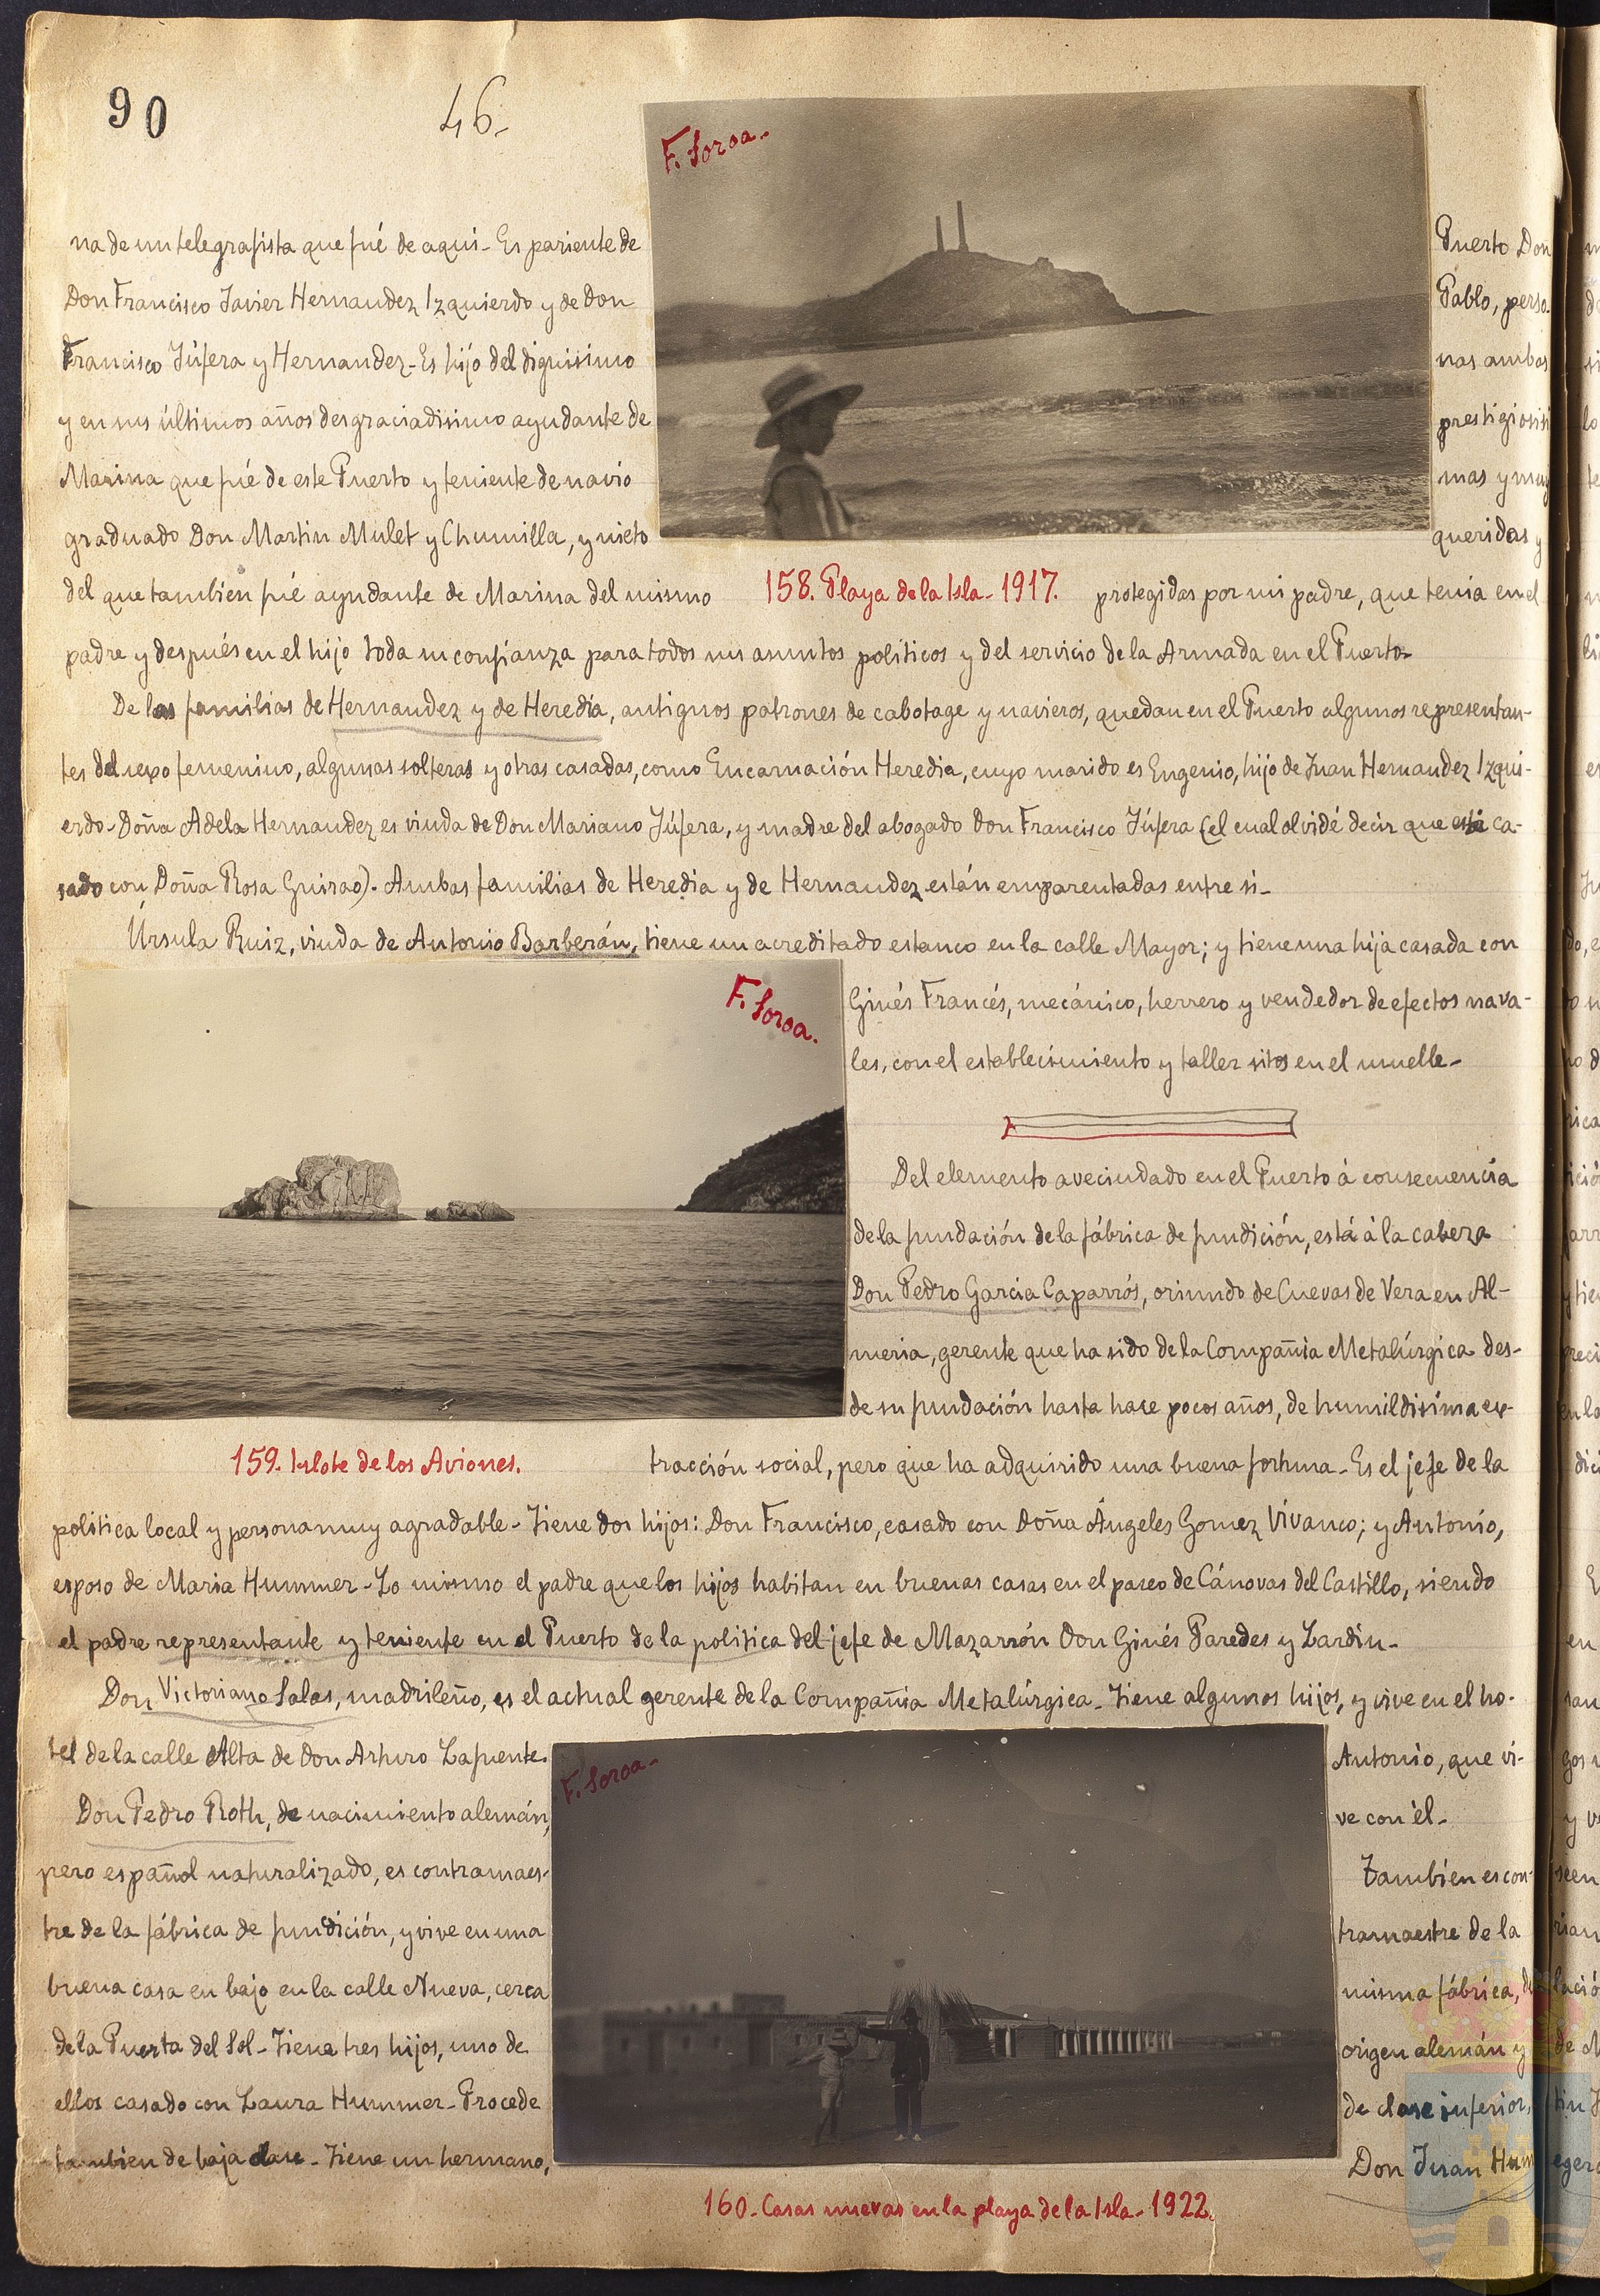 90
46.
F. Soroa.
na de un telegrafista que fué de aqui. Es pariente de
Don Francisco Javier Hernandez Izquierdo y de Don
Francisco Júfera y Hernandez. Es hijo del dignisimo
y en sus últimos años desgraciadisimo ayudante de
Marina que fué de este Puerto y teniente de navio
graduado Don Martin Mulet y Chumilla, y nieto
del que tambien fué ayudante de Marina del mismo
Puerto Don
Pablo, perso-
nas ambas
prestigiosisi
mas y muy
queridas y
158. Playa de la Isla. 1917.
protegidas por mi padre, que tenia en el
padre y después en el hijo toda su confianza para todos sus asuntos politicos y del servicio de la Armada en el Puerto.
De las familias de Hernandez y de Heredia, antiguos patrones de cabotage y navieros, quedan en el Puerto algunos representan-
tes del sexo femenino, algunas solteras y otras casadas, como Encarnación Heredia, cuyo marido es Eugenio, hijo de Juan Hernandez Izqui-
erdo. Doña Adela Hernandez es viuda de Don Mariano Júfera, y madre del abogado Don Francisco Júfera (el cual olvidé decir que está ca-
sado con Doña Rosa Guirao). Ambas familias de Heredia y de Hernandez están emparentadas entre si.
Úrsula Ruiz, viuda de Antonio Barberán, tiene un acreditado estanco en la calle Mayor; y tiene una hija casada con
F. Soroa.
Ginés Francés, mecánico, herrero y vendedor de efectos nava-
les, con el establecimiento y taller sitos en el muelle.
Del elemento avecindado en el Puerto á consecuencia
de la fundación de la fábrica de fundición, está á la cabeza
Don Pedro Garcia Caparrós, oriundo de Cuevas de Vera en Al-
meria, gerente que ha sido de la Compañia Metalúrgica des-
de su fundación hasta hace pocos años, de humildisima ex-
159. Islote de los Aviones.
tracción social, pero que ha adquirido una buena fortuna. Es el jefe de la
politica local y persona muy agradable. Tiene dos hijos: Don Francisco, casado con Doña Ángeles Gomez Vivanco; y Antonio,
esposo de Maria Hummer. Lo mismo el padre que los hijos habitan en buenas casas en el paseo de Cánovas del Castillo, siendo
el padre representante y teniente en el Puerto de la politica del jefe de Mazarrón Don Ginés Paredes y Lardin.
Don Victoriano Salas, madrileño, es el actual gerente de la Compañia Metalúrgica. Tiene algunos hijos, y vive en el ho-
tel de la calle Alta de Don Arturo Lapuente.
Don Pedro Roth, de nacimiento alemán,
pero español naturalizado, es contramaes-
tre de la fábrica de fundición, y vive en una
buena casa en bajo en la calle Nueva, cerca
de la Puerta del Sol. Tiene tres hijos, uno de
ellos casado con Laura Hummer. Procede
tambien de baja clase. Tiene un hermano,
F. Soroa.
Antonio, que vi-
ve con él.
Tambien es con-
tramaestre de la
misma fábrica, de
origen alemán y
de clase inferior,
Don Juan Hum
160. Casas nuevas en la playa de la Isla. 1922.